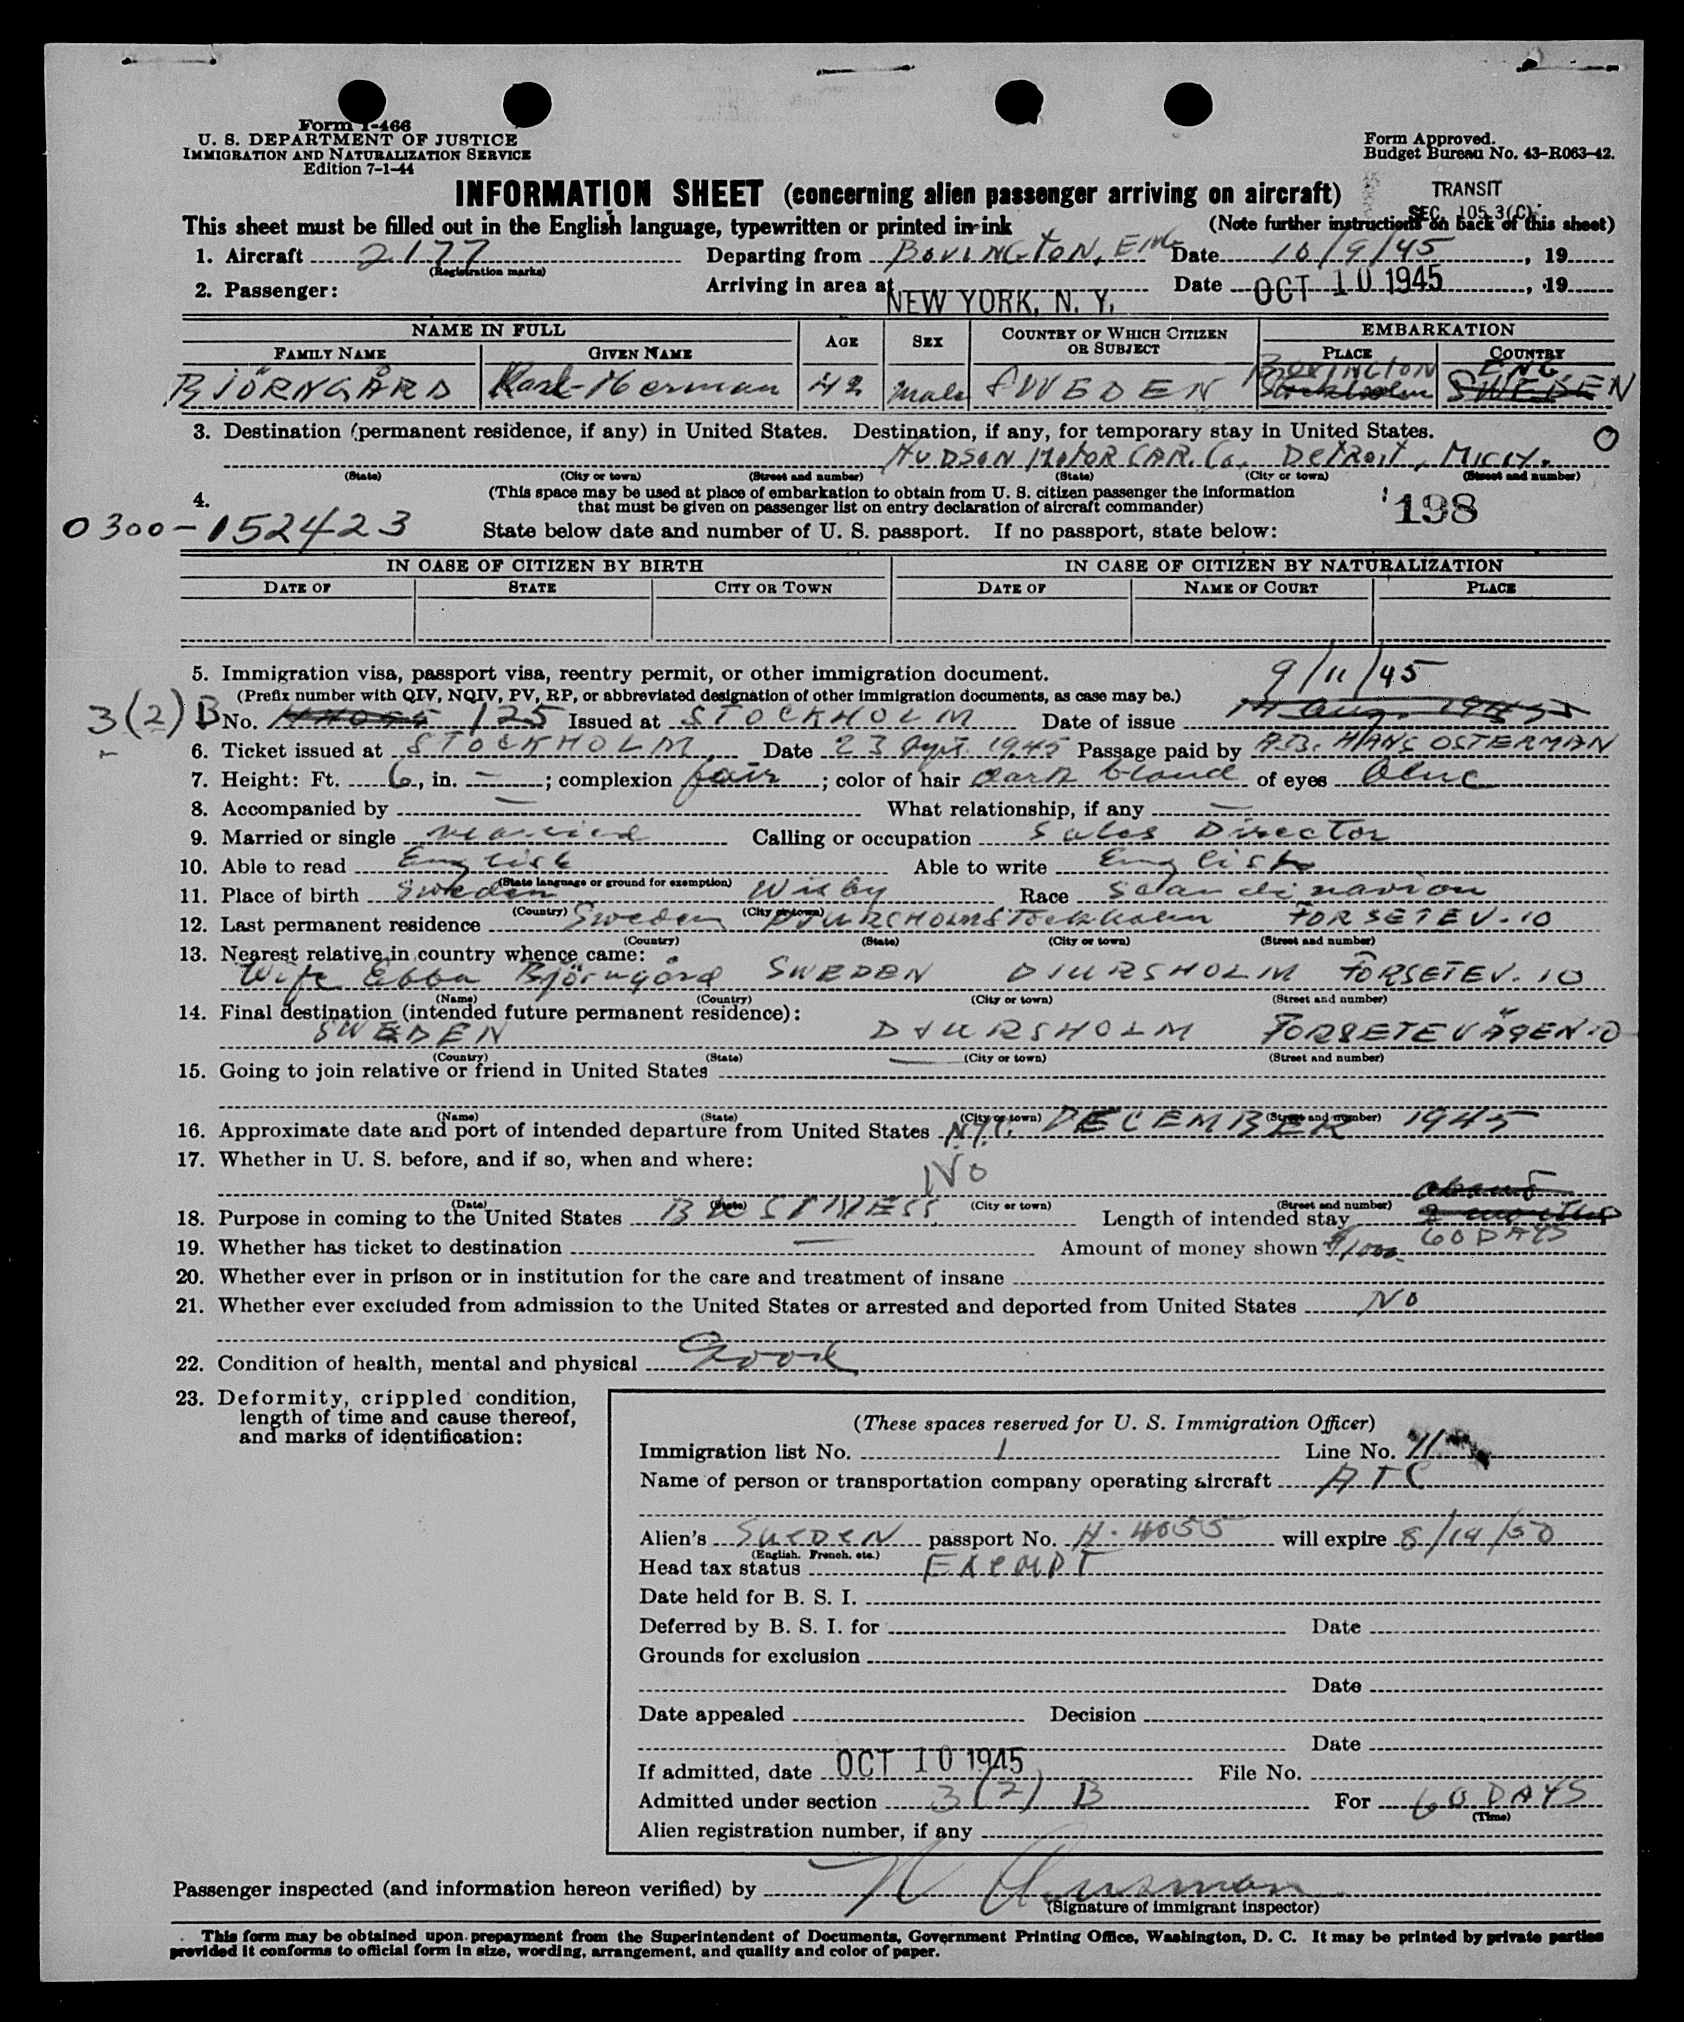 Form I-466
U. S. DEPARTMENT OF JUSTICE
IMMIGRATION AND NATURALIZATION SERVICE
Edition 7-1-44
Form Approved.
Budget Bureau No. 43-R063-42.
INFORMATION SHEET (concerning alien passenger arriving on aircraft)
TRANSIT
SEC. 105.3(C)
This sheet must be filled out in the English language, typewritten or printed in ink (Note further instructions on back of this sheet)
1. Aircraft 2177 Departing from BOVINGTON, ENG Date 10/9/45, 19
(Registration marks)
2. Passenger: Arriving in area at NEW YORK, N. Y. Date OCT 10 1945, 19
NAME IN FULL AGE SEX COUNTRY OF WHICH CITIZEN OR SUBJECT EMBARKATION
FAMILY NAME GIVEN NAME PLACE COUNTRY
BOVINGTON ENG
BJÖRNGÅRD Karl-Herman 42 Male SWEDEN Stockholm SWEDEN
3. Destination (permanent residence, if any) in United States. Destination, if any, for temporary stay in United States.
O
HUDSON MOTOR CAR. Co. DETROIT, MICH.
(State) (City or town) (Street and number) (State) (City or town) (Street and number)
4. (This space may be used at place of embarkation to obtain from U. S. citizen passenger the information
that must be given on passenger list on entry declaration of aircraft commander)
198
0300-152423 State below date and number of U. S. passport. If no passport, state below:
IN CASE OF CITIZEN BY BIRTH IN CASE OF CITIZEN BY NATURALIZATION
DATE OF STATE CITY OR TOWN DATE OF NAME OF COURT PLACE
5. Immigration visa, passport visa, reentry permit, or other immigration document. 9/11/45
(Prefix number with QIV, NQIV, PV, RP, or abbreviated designation of other immigration documents, as case may be.)
3(2)B No. 125 Issued at STOCKHOLM Date of issue 14 Aug. 1945
6. Ticket issued at STOCKHOLM Date 23 1945 Passage paid by A.B. HANS OSTERMAN
7. Height: Ft. 6, in. –; complexion fair; color of hair dark blond of eyes blue
8. Accompanied by – What relationship, if any –
9. Married or single married Calling or occupation Sales Director
10. Able to read English Able to write English
(State language or ground for exemption)
11. Place of birth Sweden Wisby Race Scandinavian
(Country) (City or town)
12. Last permanent residence Sweden DJURSHOLM Stockholm FORSETEV. 10
(Country) (State) (City or town) (Street and number)
13. Nearest relative in country whence came:
Wife Ebba Björngård SWEDEN DJURSHOLM FORSETEV. 10
(Name) (Country) (City or town) (Street and number)
14. Final destination (intended future permanent residence):
SWEDEN DJURSHOLM FORSETEVÄGEN 10
(Country) (State) (City or town) (Street and number)
15. Going to join relative or friend in United States
(Name) (State) (City or town) (Street and number)
16. Approximate date and port of intended departure from United States N.Y.C. DECEMBER 1945
17. Whether in U. S. before, and if so, when and where: No
(Date) (State) (City or town) (Street and number)
about
18. Purpose in coming to the United States BUSINESS Length of intended stay 2 months
60 DAYS
19. Whether has ticket to destination – Amount of money shown $1000
20. Whether ever in prison or in institution for the care and treatment of insane
21. Whether ever excluded from admission to the United States or arrested and deported from United States No
22. Condition of health, mental and physical Good
23. Deformity, crippled condition,
length of time and cause thereof,
and marks of identification:
(These spaces reserved for U. S. Immigration Officer)
Immigration list No. 1 Line No. 11
Name of person or transportation company operating aircraft ATC
Alien's SWEDEN passport No. H-4055 will expire 8/14/50
(English, French, etc.)
Head tax status EXEMPT
Date held for B. S. I.
Deferred by B. S. I. for Date
Grounds for exclusion
Date
Date appealed Decision
Date
If admitted, date OCT 10 1945 File No.
Admitted under section 3(2)B For 60 DAYS
(Time)
Alien registration number, if any
Passenger inspected (and information hereon verified) by
(Signature of immigrant inspector)
This form may be obtained upon prepayment from the Superintendent of Documents, Government Printing Office, Washington, D. C. It may be printed by private parties
provided it conforms to official form in size, wording, arrangement, and quality and color of paper.